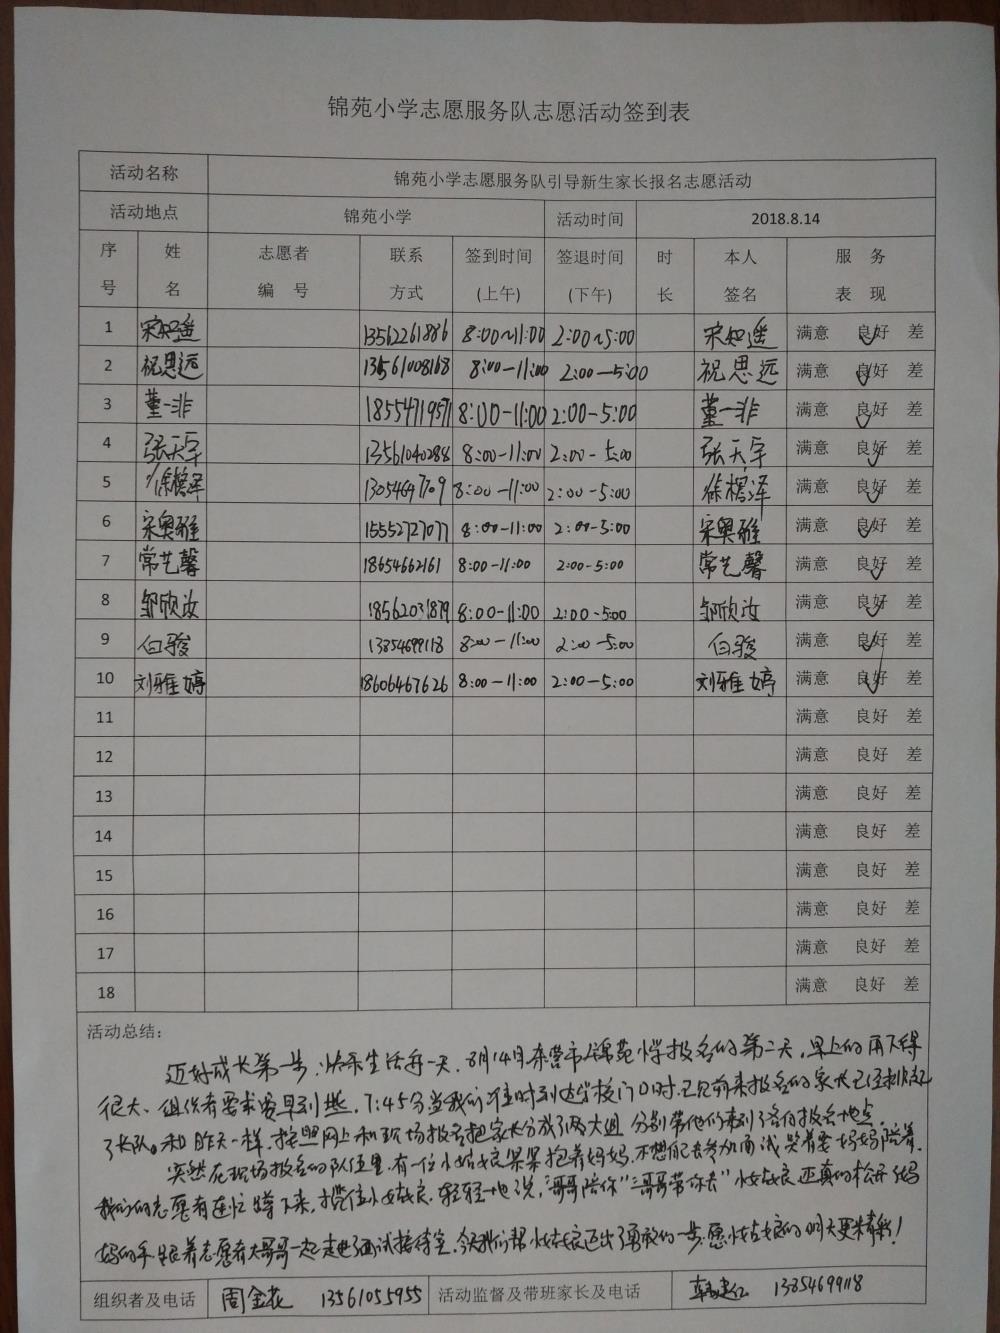 锦苑小学志愿服务队志愿活动签到表
活动名称 锦苑小学志愿服务队引导新生家长报名志愿活动
活动地点 锦苑小学 活动时间 2018.8.14
序号 姓名 志愿者编号 联系方式 签到时间(上午) 签退时间(下午) 时长 本人签名 服务表现
1 宋知遥 13562261886 8:00~11:00 2:00~5:00 宋知遥 满意 良好 差
2 祝思远 13561008168 8:00-11:00 2:00-5:00 祝思远 满意 良好 差
3 董一非 18554719571 8:00-11:00 2:00-5:00 董一非 满意 良好 差
4 张天宇 13561040288 8:00-11:00 2:00-5:00 张天宇 满意 良好 差
5 徐榕泽 13054647709 8:00-11:00 2:00-5:00 徐榕泽 满意 良好 差
6 宋奥雅 15552727077 8:00-11:00 2:00-5:00 宋奥雅 满意 良好 差
7 常艺馨 18654662161 8:00-11:00 2:00-5:00 常艺馨 满意 良好 差
8 邹欣汝 18562031879 8:00-11:00 2:00-5:00 邹欣汝 满意 良好 差
9 白骏 13854699118 8:00-11:00 2:00-5:00 白骏 满意 良好 差
10 刘雅婷 18606467626 8:00-11:00 2:00-5:00 刘雅婷 满意 良好 差
11 满意 良好 差
12 满意 良好 差
13 满意 良好 差
14 满意 良好 差
15 满意 良好 差
16 满意 良好 差
17 满意 良好 差
18 满意 良好 差
活动总结:
迈好成长第一步,快乐生活每一天,8月14日东营市锦苑小学报名的第二天,早上的雨下得
很大、组织者要求要早到些,7:45分当我们准时到达学校门口时,已见前来报名的家长已经排起
了长队。和昨天一样,按照网上和现场报名把家长分成了两大组 分别带他们来到了各自报名地点
突然在现场报名的队伍里,有一位小姑娘呆呆抱着妈妈,不想自己去参加面试哭着要妈妈陪着,
我们的志愿者连忙蹲下来,搂住小姑娘,轻轻地说,"哥哥陪你""哥哥带你去"小姑娘还真的松开了妈
妈的手跟着志愿者大哥哥一起走进了面试接待室,今天我们帮小姑娘迈出了勇敢的一步,愿小姑娘的明天更精彩!
组织者及电话 周金花 13561055955 活动监督及带班家长及电话 韩建红 13854699118